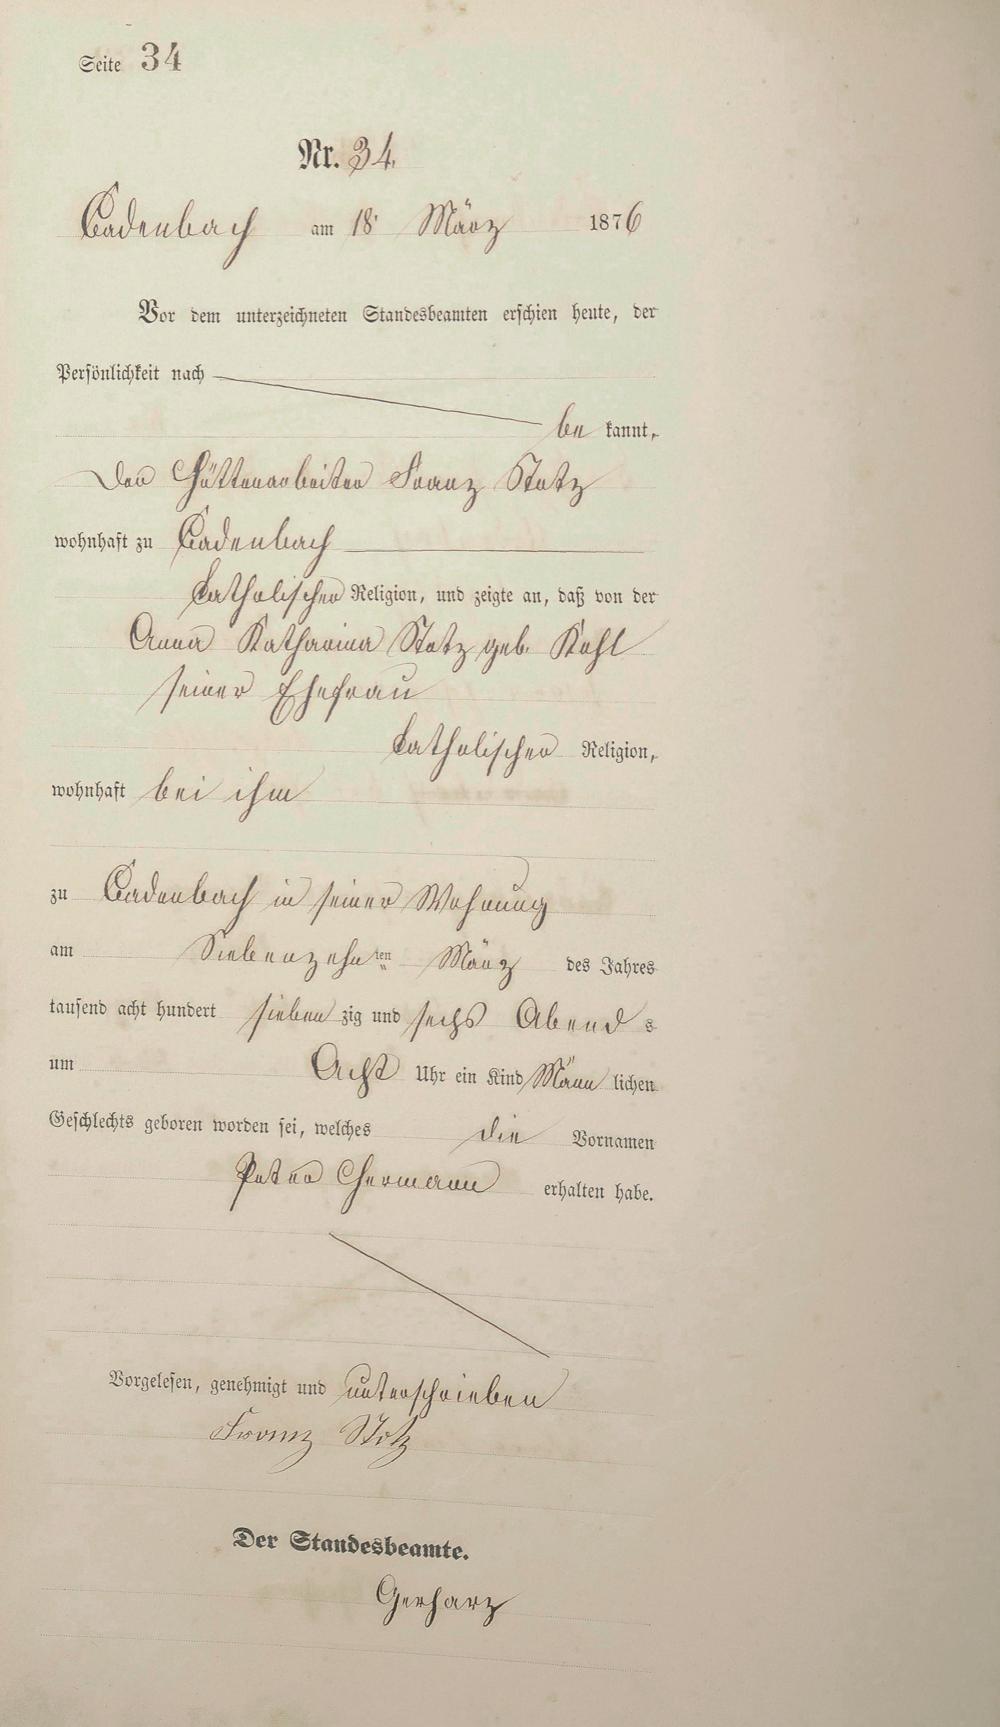 Seite 34
Nr. 34.
Cadenbach am 18. März 1876
Vor dem unterzeichneten Standesbeamten erschien heute, der
Persönlichkeit nach
be kannt,
Der Hüttenarbeiter Franz Stotz
wohnhaft zu Cadenbach
katholischer Religion, und zeigte an, daß von der
Anna Katharina Stotz geb. Kohl
seiner Ehefrau
katholischer Religion,
wohnhaft bei ihm
zu Cadenbach in seiner Wohnung
am Siebenzehnten März des Jahres
tausend acht hundert sieben zig und sechs Abend s
um Acht Uhr ein Kind Männ lichen
Geschlechts geboren worden sei, welches die Vornamen
Peter Hermann erhalten habe.
Vorgelesen, genehmigt und unterschrieben
Franz Stotz
Der Standesbeamte.
Gerharz